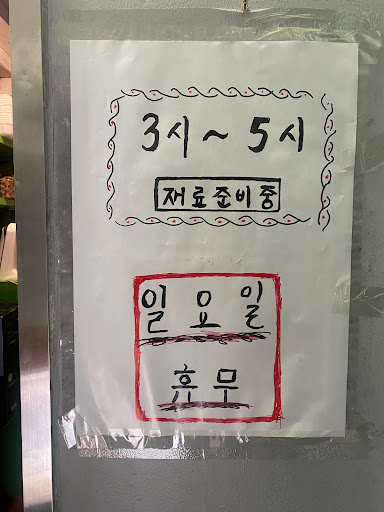 3시~5시
재료준비중
일요일
휴무